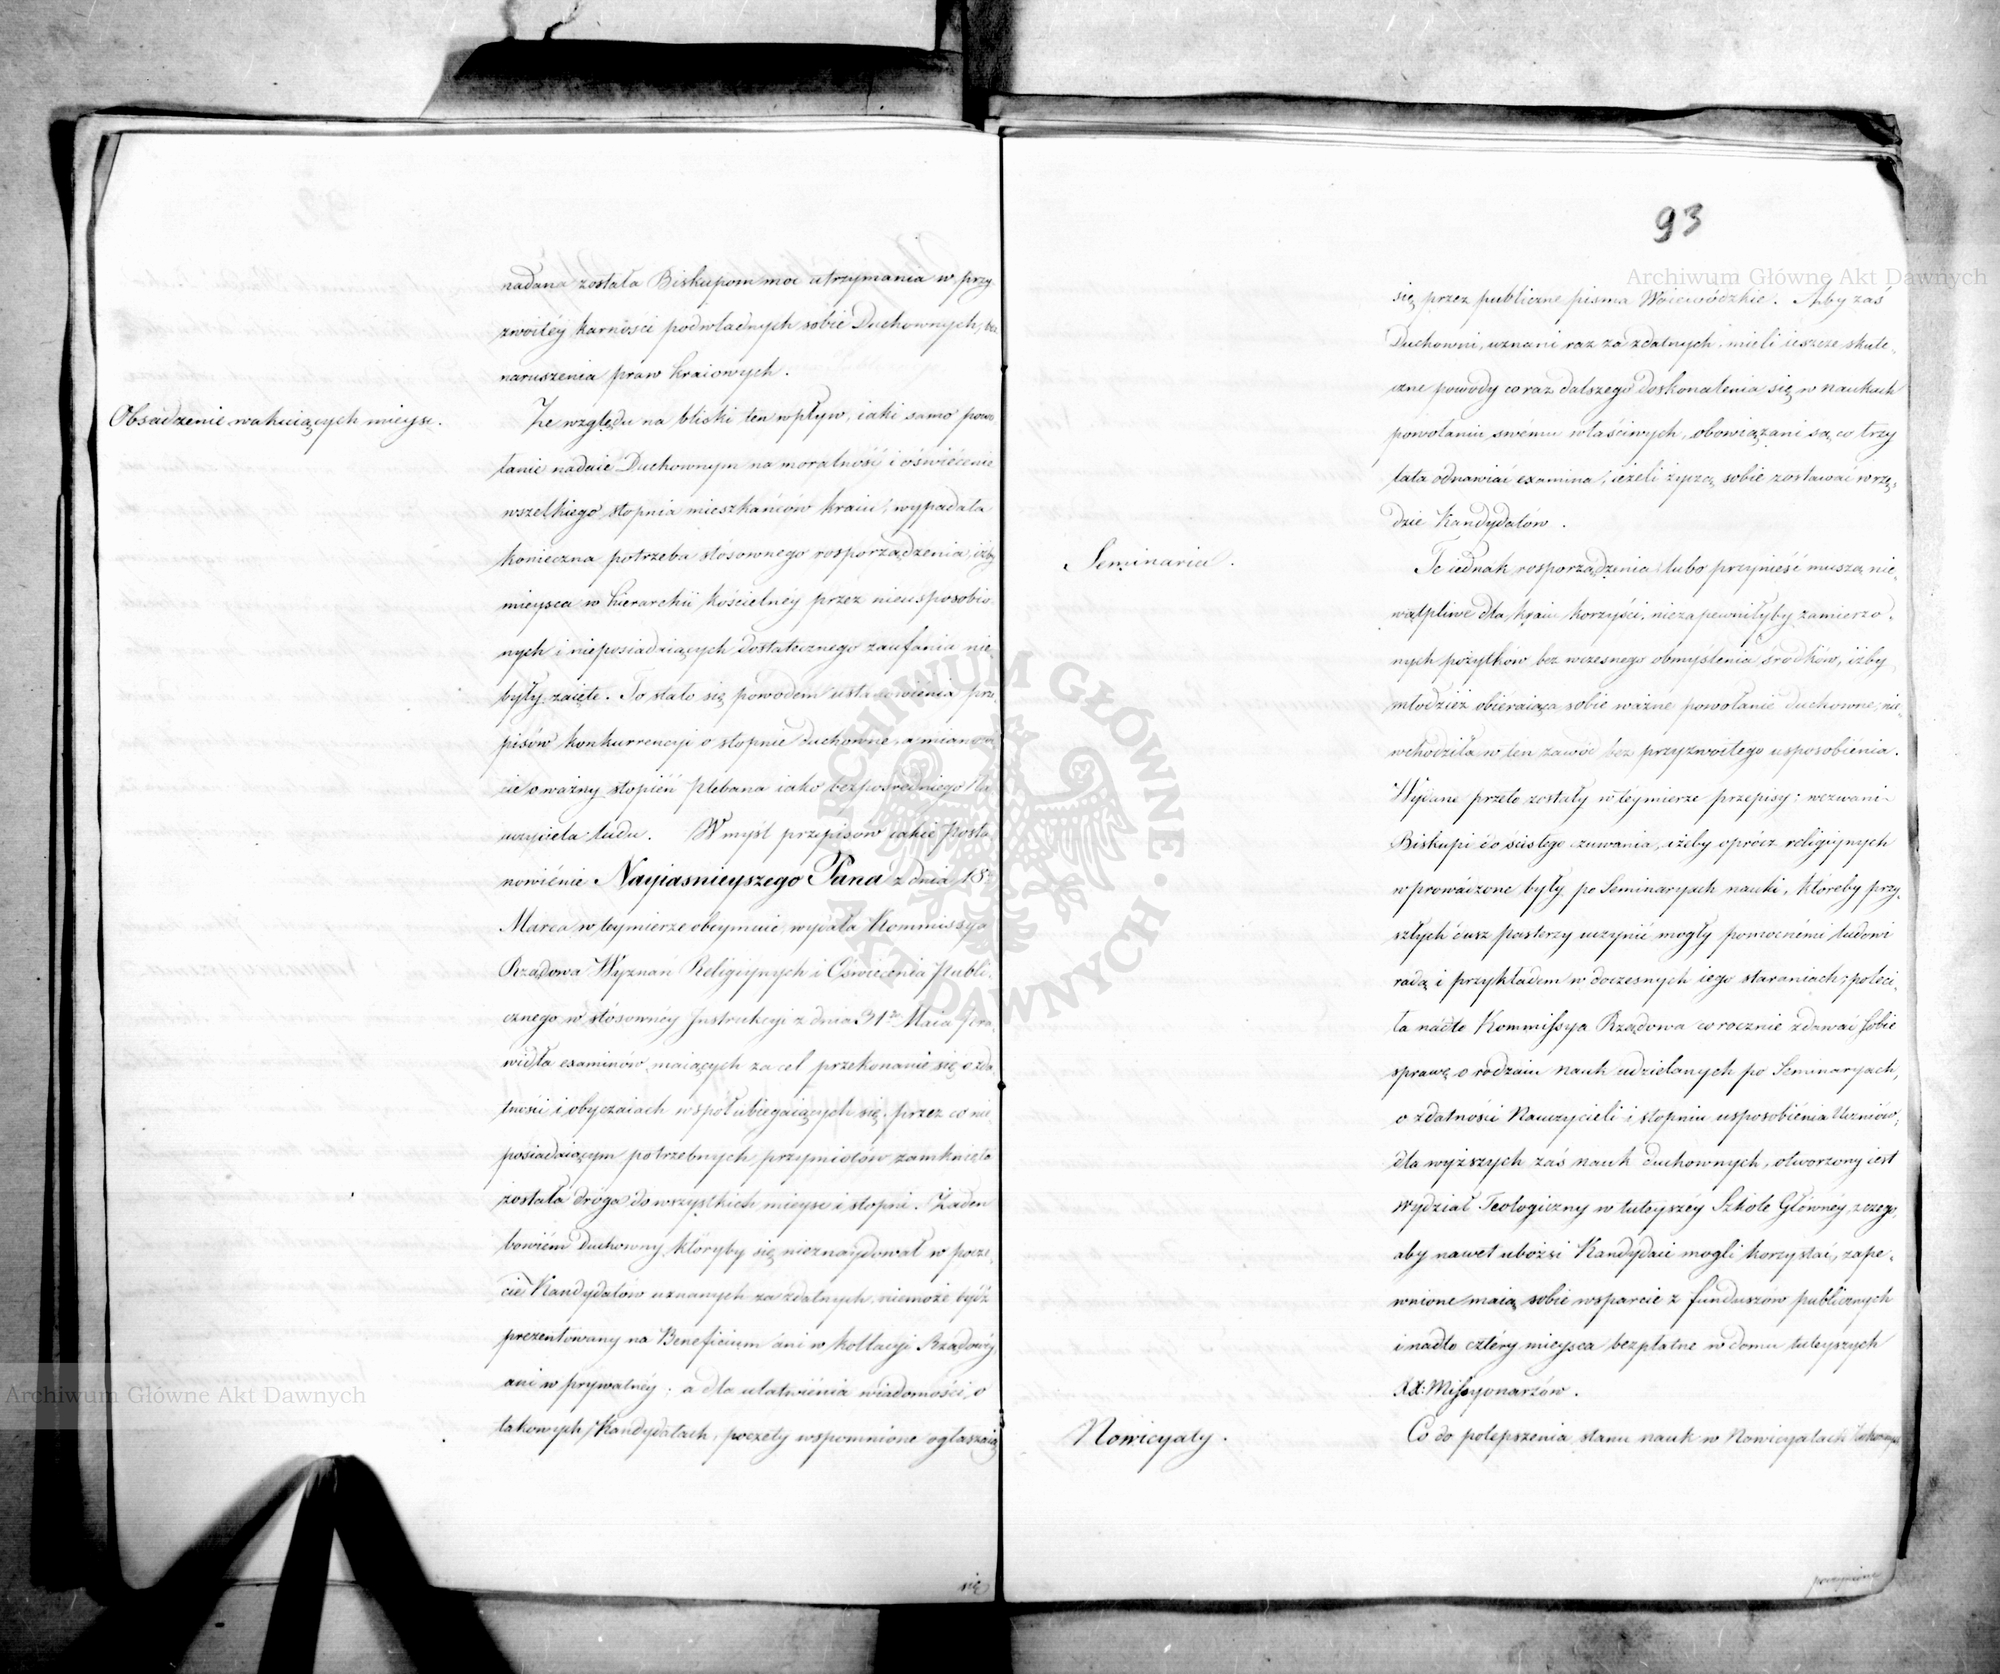 nadana została Biskupom moc utrzymania w przy-
zwoitéy karności podwładnych sobie Duchownych, bez
naruszenia praw kraiowych.
Obsadzenie wakuiących mieysc.
Ze względu na bliski ten wpływ, iaki samo powo-
łanie nadaie Duchownym na moralność i oświécenie
wszelkiego stopnia mieszkańców kraiu, wypadała
konieczna potrzeba stósownego rosporządzenia, iżby
mieysca w hierarchii kościelnéy przez nieusposobio-
nych i nieposiadaiących dostatecznego zaufania nie-
były zaięte. To stało się powodem ustanowienia prze-
pisów konkurrencyi o stopnie duchowne, a mianowi-
cie o ważny stopień Plebana iako bezpośredniego Na-
uczyciela ludu. W myśl przepisów iakie Posta-
nowiénie Nayiaśnieyszego Pana z dnia 18go
Marca w téymierze obeymuie, wydała Kommissya
Rządowa Wyznań Religiynych i Oświécenia Publi-
cznego w stósownéy Instrukcyi z dnia 31go Maia pra-
widła examinów maiących za cel przekonanie się o zda-
tności i obyczaiach współubiegaiących się, przez co nie-
posiadaiącym potrzebnych przymiotów zamknięta
została droga do wszystkich mieysc i stopni. Żaden
bowiém Duchowny, któryby się nieznaydował w pocze-
cie Kandydatów uznanych za zdatnych, niemoże bydź
prezentowany na Beneficium ani w kollacyi Rządowéy,
ani w prywatnéy; a dla ułatwiénia wiadomości o
takowych Kandydatach, poczety wspomnione ogłaszaią
się
93
się przez publiczne pisma Woiewódzkie. Aby zaś
Duchowni, uznani raz za zdatnych, mieli ieszcze skute-
czne powody coraz dalszego doskonalenia się w naukach
powołaniu swému właściwych, obowiązani są co trzy
lata odnawiać examina, ieżeli życzą sobie zostawać w rzę-
dzie Kandydatów.
Seminaria.
Te iednak rosporządzenia lubo przynieść muszą nie-
wątpliwe dla kraiu korzyści, niezapewniłyby zamierzo-
nych pożytków bez wczesnego obmyślenia środków, iżby
młodzież obieraiąca sobie ważne powołanie duchowne, nie-
wchodziła w ten zawód bez przyzwoitego usposobiénia.
Wydane przeto zostały w téymierze przepisy; wezwani
Biskupi do ścisłego czuwania, iżeby oprócz religiynych
wprowadzone były po Seminaryach nauki, któreby przy-
szłych dusz pasterzy uczynić mogły pomocnémi ludowi
radą i przykładem w doczesnych iego staraniach; poleci-
ła nadto Kommissya Rządowa corocznie zdawać sobie
sprawę o rodzaiu nauk udzielanych po Seminaryach,
o zdatności Nauczycieli i stopniu usposobiénia Uczniów;
dla wyższych zaś nauk duchownych, otworzony iest
Wydział Teologiczny w tuteyszéy Szkole Głównéy, z czego,
aby nawet ubożsi Kandydaci mogli korzystać, zape-
wnione maią sobie wsparcie z funduszów publicznych
i nadto cztéry mieysca bezpłatne w domu tuteyszych
XX: Missyonarzów.
Nowicyaty.
Co do polepszenia stanu nauk w Nowicyatach